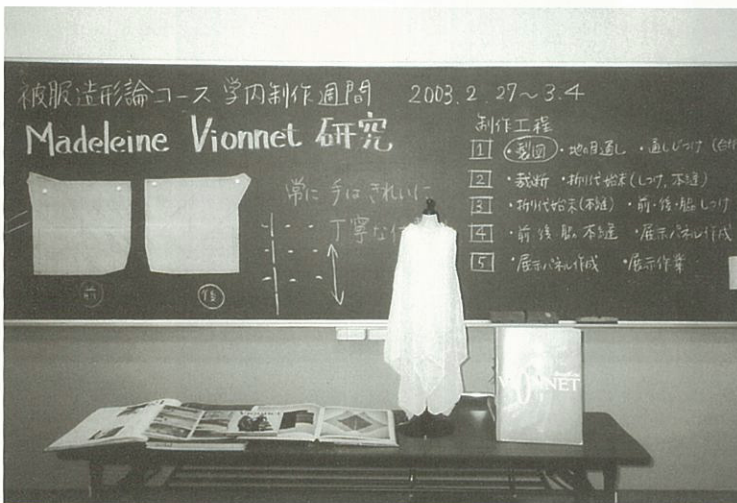 被服造形論コース 学内制作週間 2003.2.27~3.4
Madeleine Vionnet 研究
常に手はきれいに
丁寧な
前
後
制作工程
1 ・製図 ・地の目通し ・通しじつけ
2 ・裁断 ・折り代始末(しつけ、本縫)
3 ・折り代始末(本縫) ・前・後・脇しつけ
4 ・前後脇本縫 ・展示パネル作成
5 ・展示パネル作成 ・展示作業
Vionnet
VIONNET